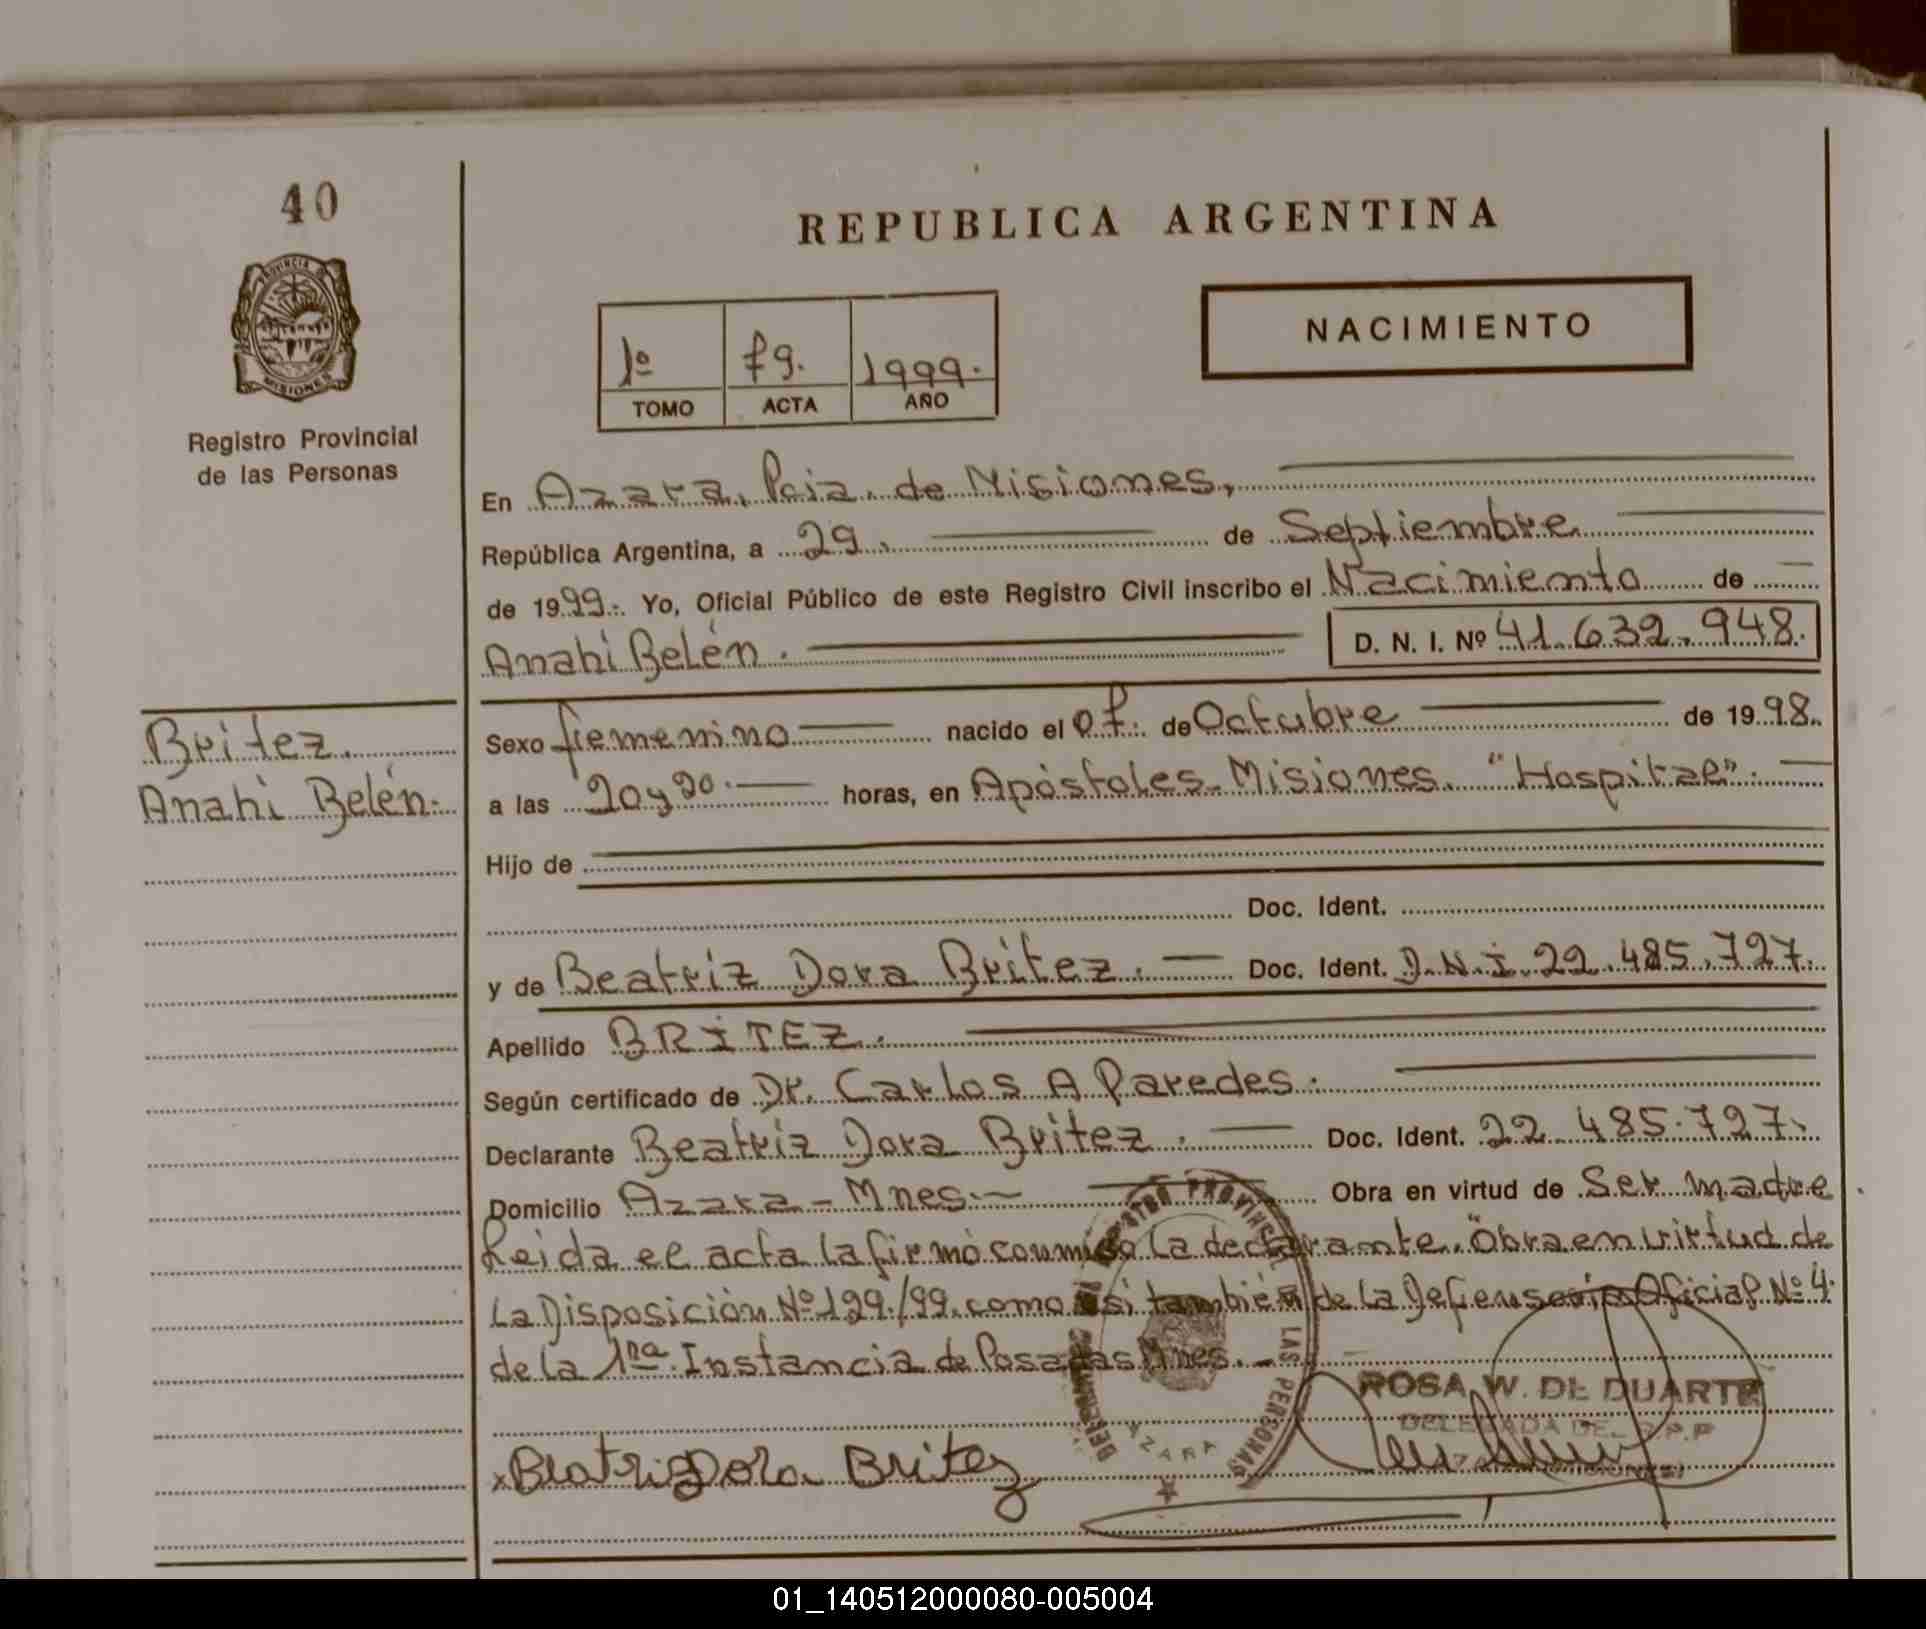 40
REPUBLICA ARGENTINA
PROVINCIA DE
MISIONES
Registro Provincial
de las Personas
1º 79. 1999.
TOMO ACTA AÑO
NACIMIENTO
En Azara, Pcia. de Misiones,
República Argentina, a 29. de Septiembre
de 1999.. Yo, Oficial Público de este Registro Civil inscribo el Nacimiento de
Anahi Belén. D. N. I. Nº 41.632.948.
Britez.
Anahi Belén.
Sexo femenino nacido el 07. de Octubre de 1998.
a las 20y20. horas, en Apóstoles-Misiones. "Hospital".
Hijo de
Doc. Ident.
y de Beatriz Dora Britez. Doc. Ident. D.N.I. 22.485.727.
Apellido BRITEZ.
Según certificado de Dr. Carlos A Paredes.
Declarante Beatriz Dora Britez. Doc. Ident. 22.485.727.
Domicilio Azara-Mnes. Obra en virtud de Ser madre
Leida el acta la firmó conmigo la declarante. "Obra en virtud de
la Disposición Nº 199/99. como así también de la Defensoria Oficial Nº 4.
de la 1ra. Instancia de Posadas Mnes.
REGISTRO PROVINCIAL DE LAS PERSONAS
AZARA
ROSA W. DE DUARTE
DELEGADA DEL R.P.P
x Beatriz Dora Britez
01_140512000080-005004